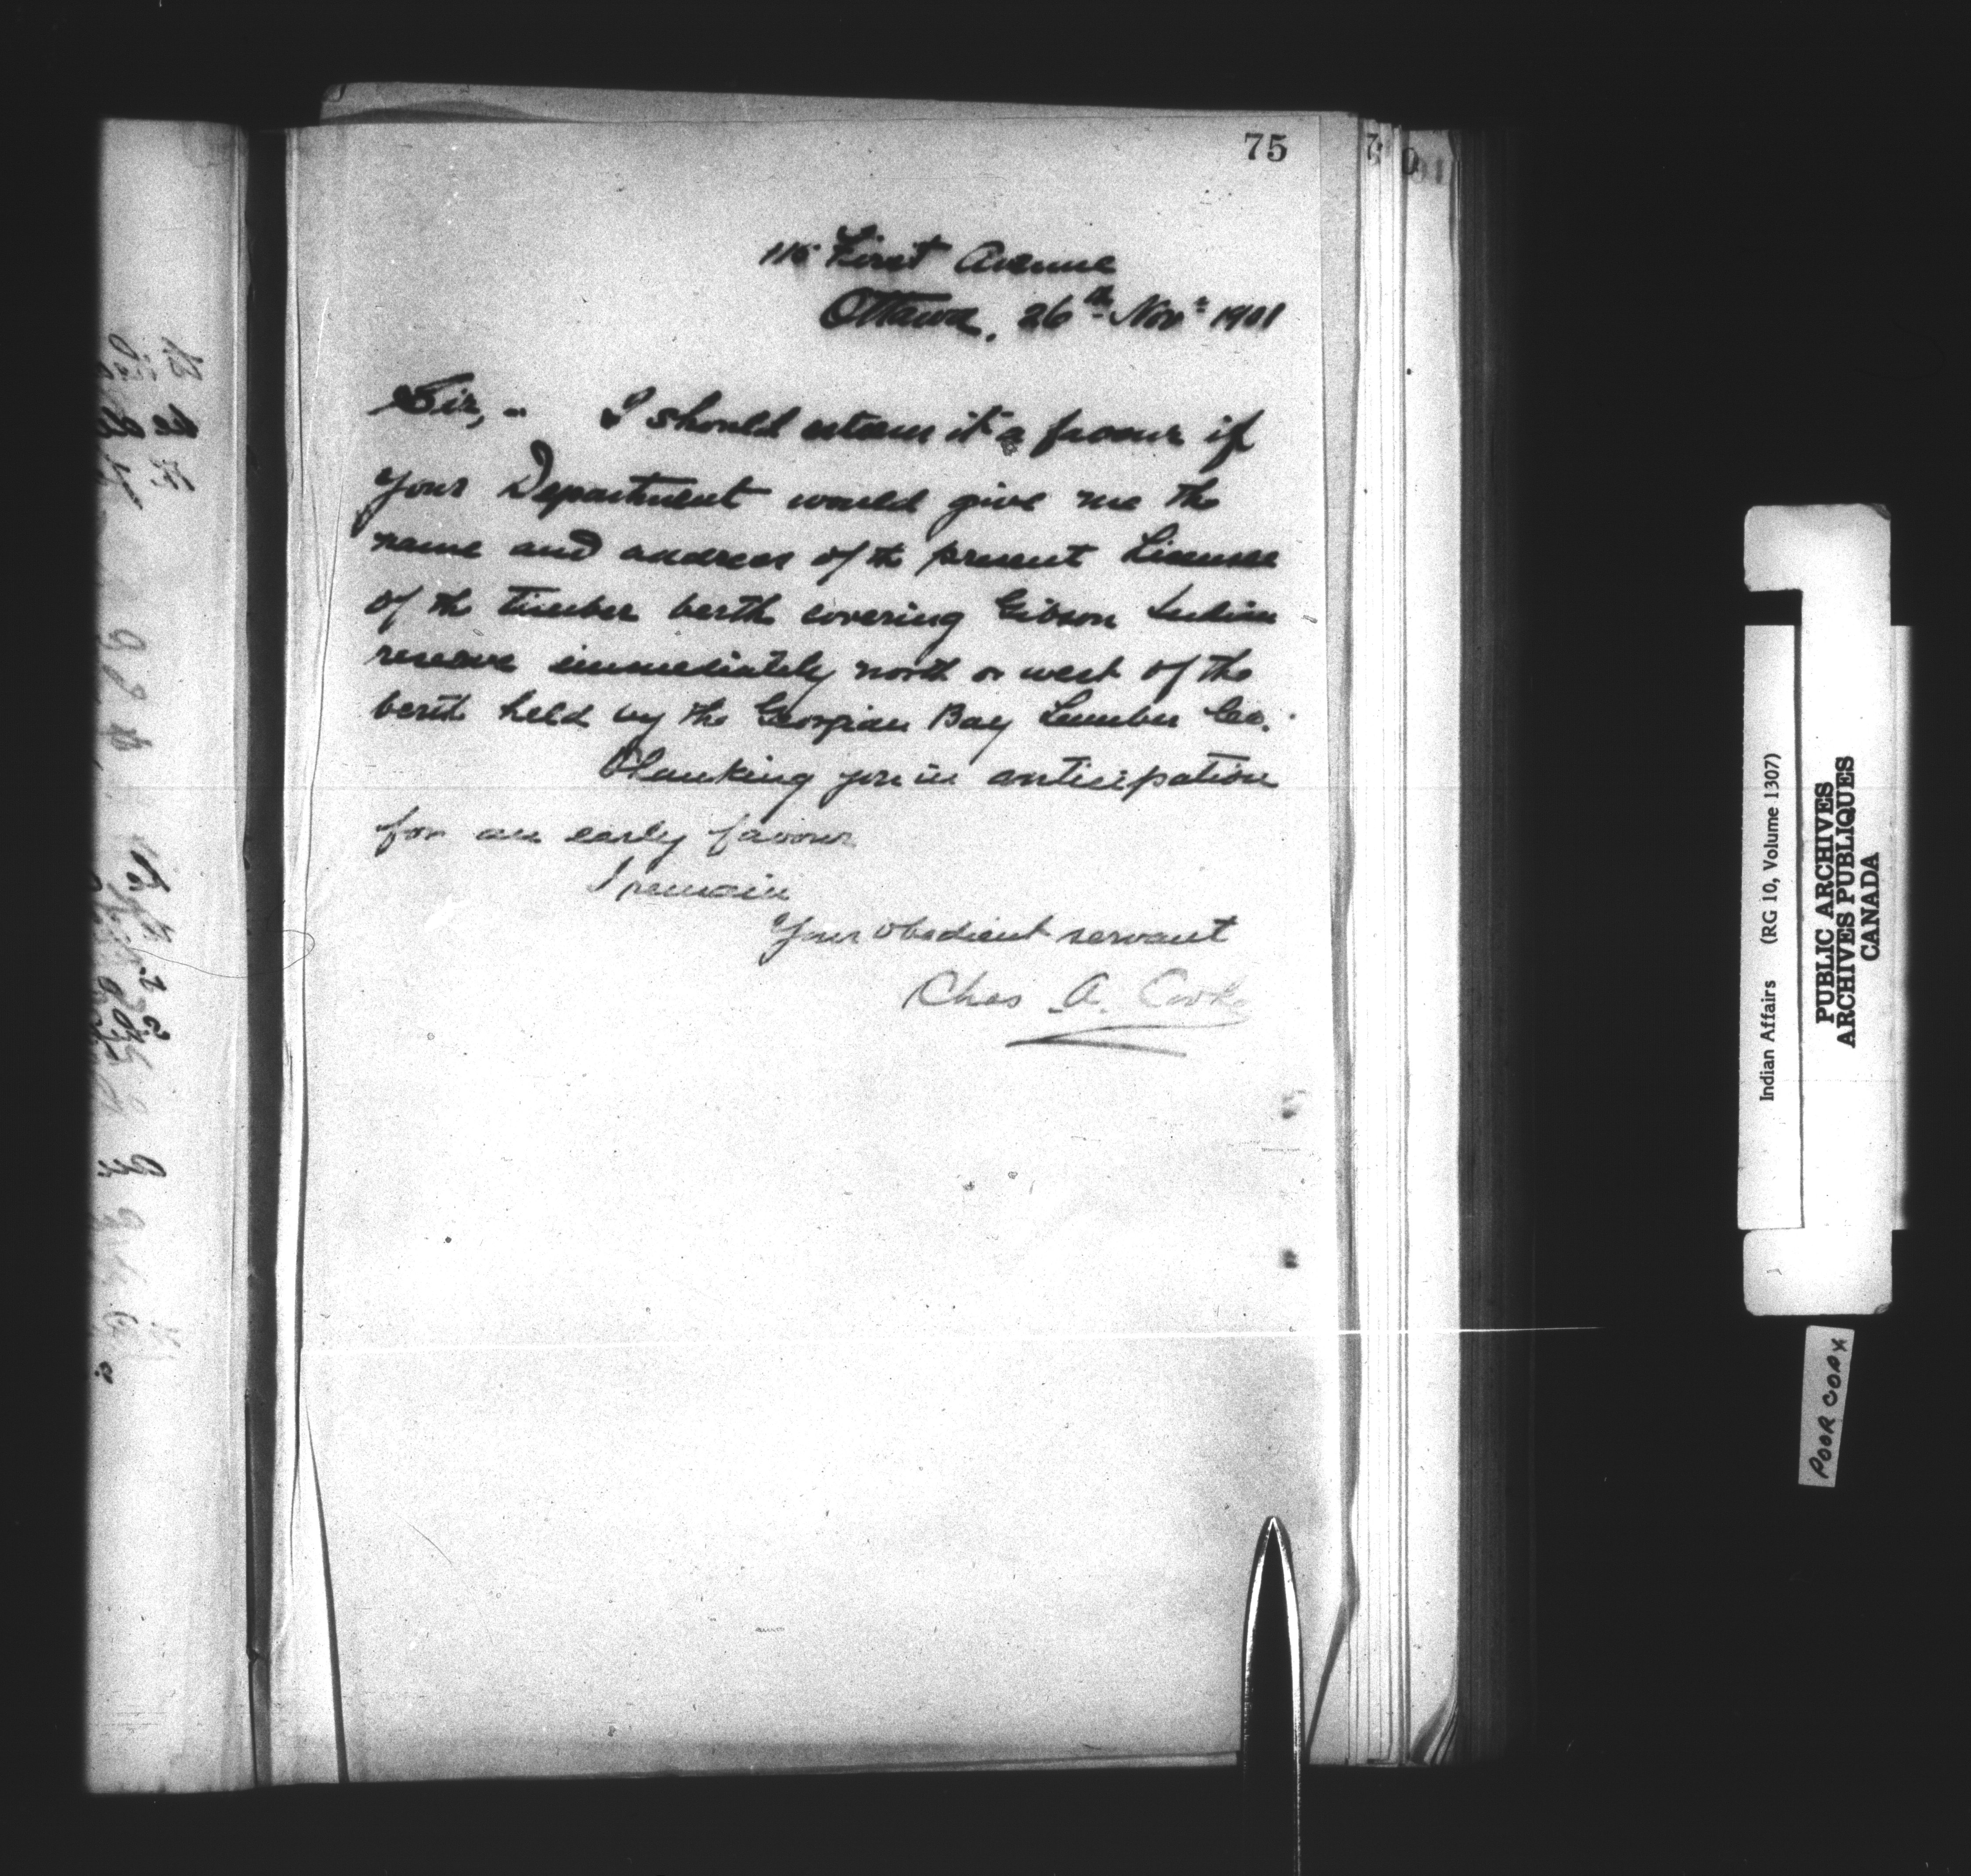 75
115 First Avenue
Ottawa, 26th Novr 1901
Sir, - I should esteem it a favour if
your Department would give me the
name and address of the present Licensee
of the timber berth covering Gibson Indian
reserve immediately north or west of the
berth held by the Georgian Bay Lumber Co.
Thanking you in anticipation
for an early favour
I remain
Your obedient servant
Chas A. Cooke
Indian Affairs (RG 10, Volume 1307)
PUBLIC ARCHIVES
ARCHIVES PUBLIQUES
CANADA
POOR COPY